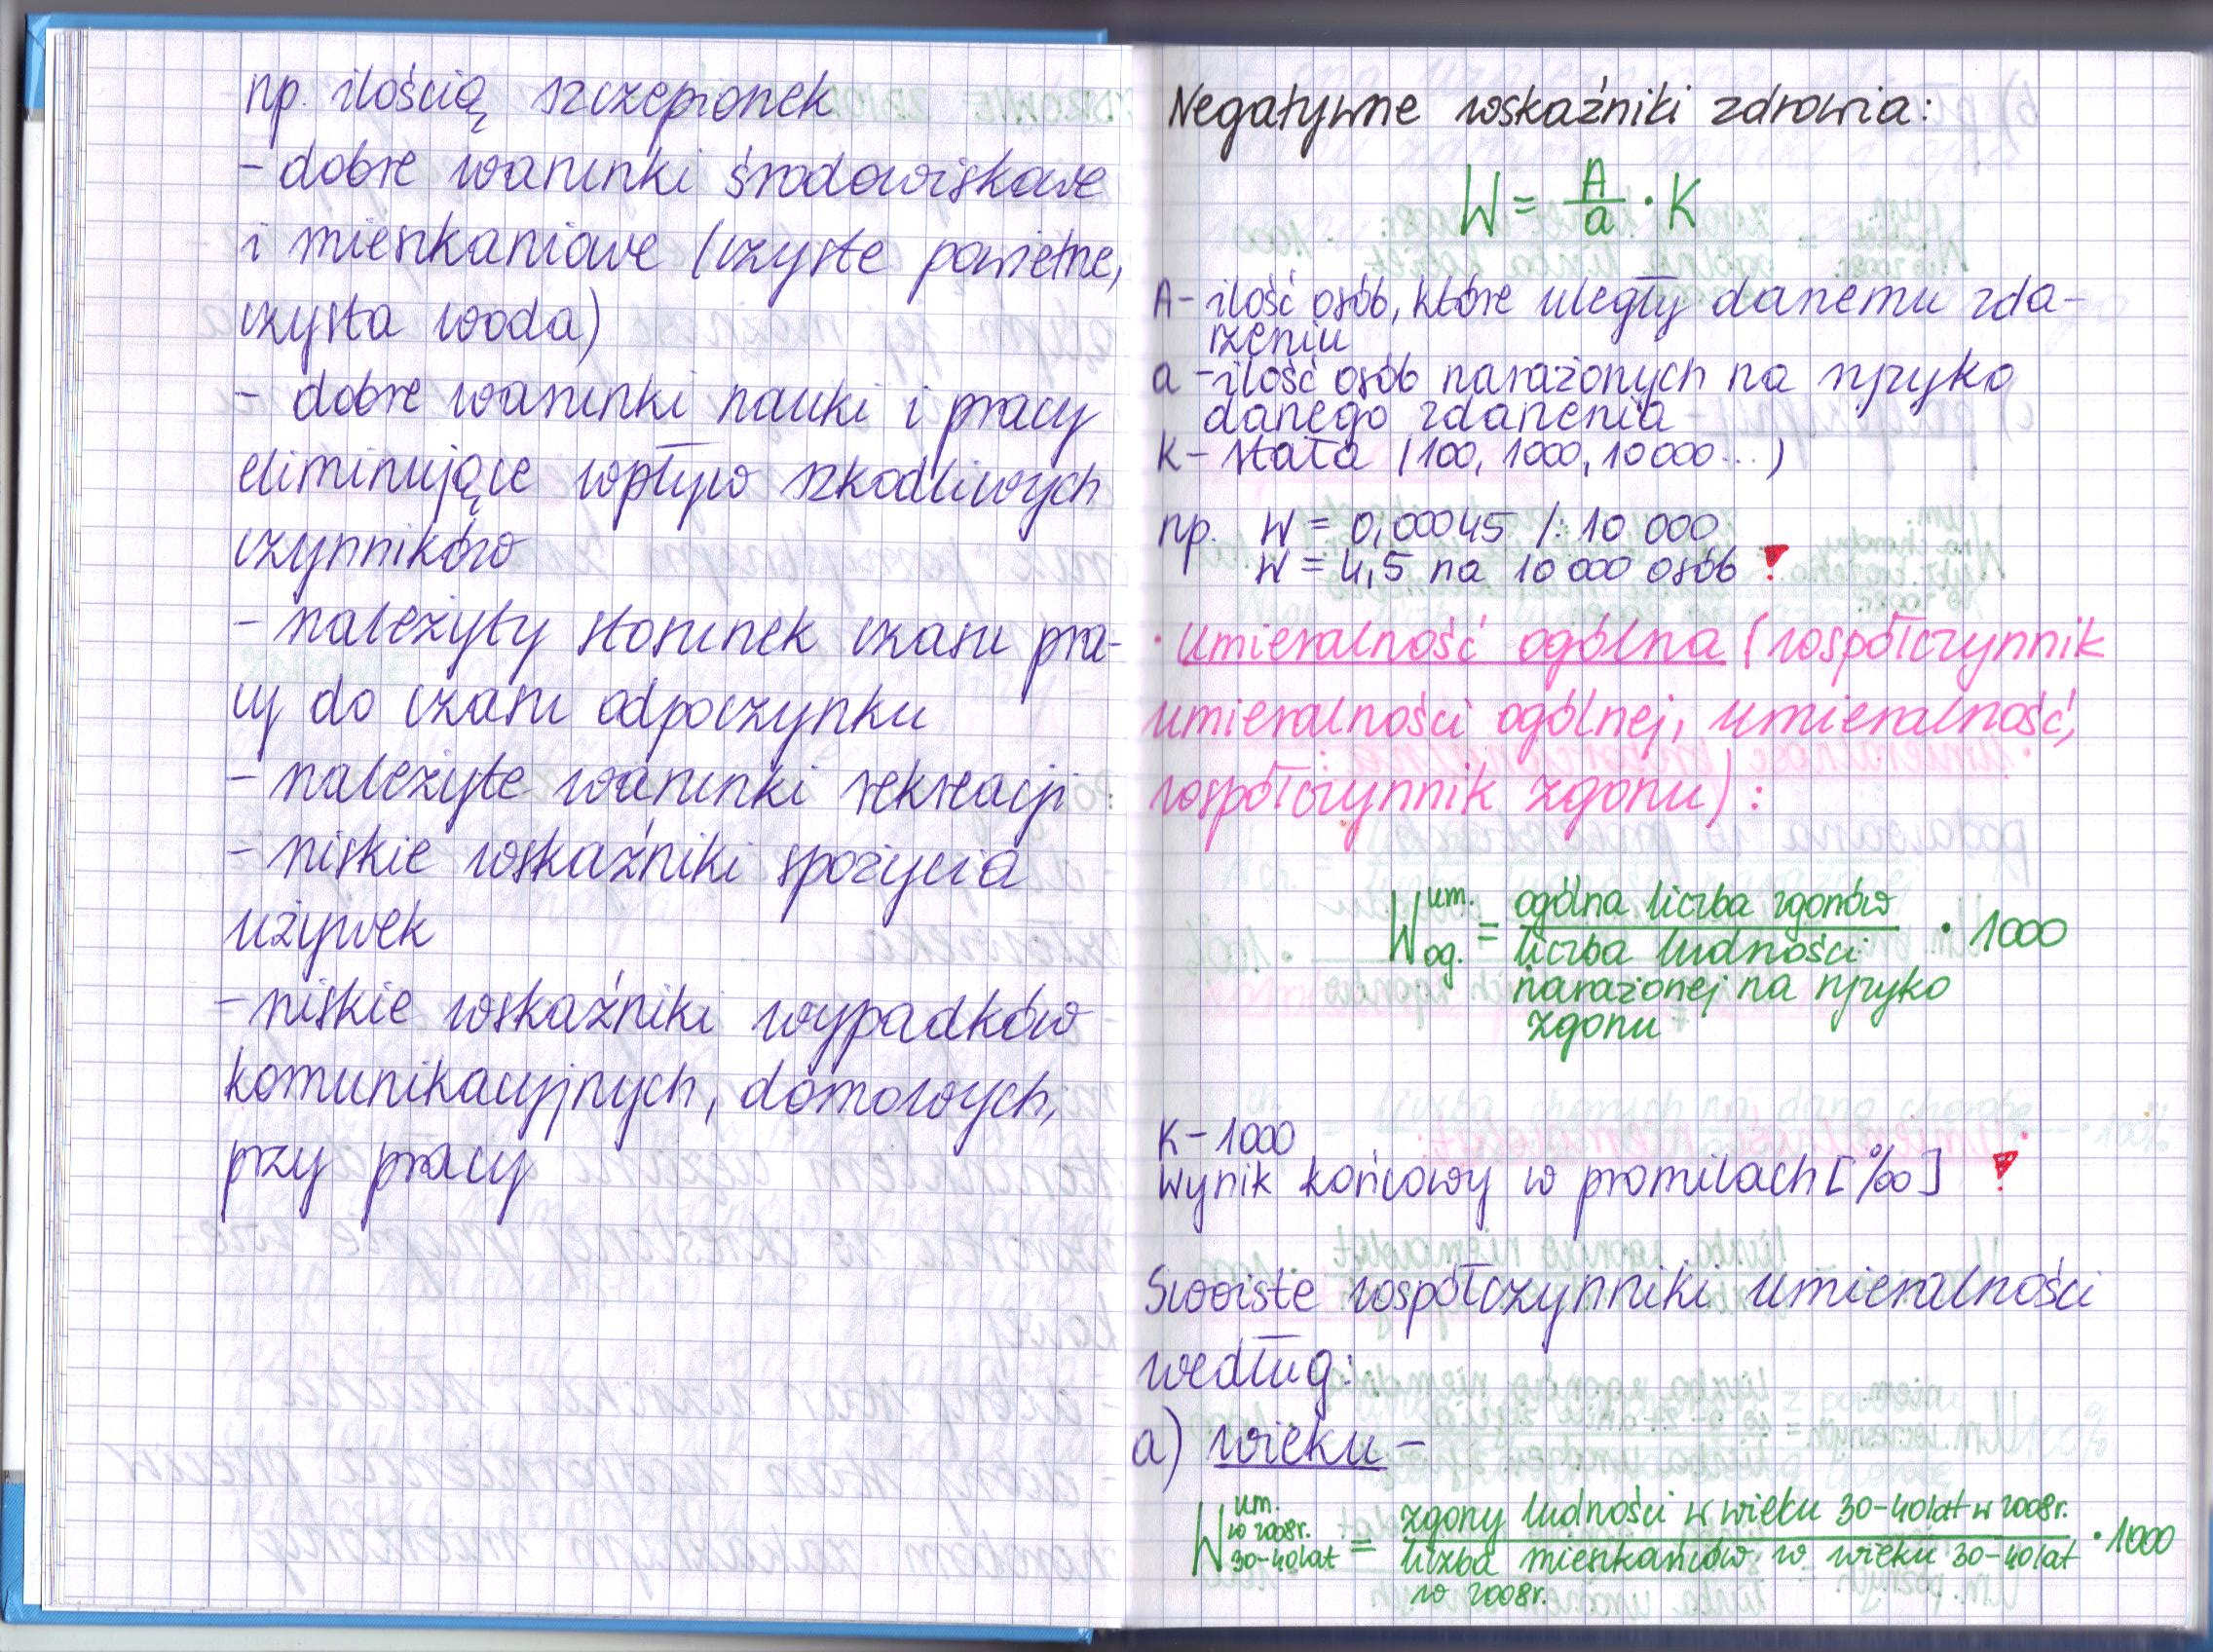 np. ilością szczepionek
- dobre warunki środowiskowe
i mieszkaniowe (czyste powietrze,
czysta woda)
- dobre warunki nauki i pracy
eliminujące wpływ szkodliwych
czynników
- należyty stosunek czasu pra-
cy do czasu odpoczynku
- należyte warunki rekreacji
- niskie wskaźniki spożycia
używek
- niskie wskaźniki wypadków
komunikacyjnych, domowych,
przy pracy
Negatywne wskaźniki zdrowia:
W = A/a · K
A - ilość osób, które uległy danemu zda-
rzeniu
a - ilość osób narażonych na ryzyko
danego zdarzenia
K - stała (100, 1000, 10 000...)
np. W = 0,00045 /: 10 000
W = 4,5 na 10 000 osób !
· umieralność ogólna (współczynnik
umieralności ogólnej, umieralność,
współczynnik zgonu):
W um. og. = ogólna liczba zgonów · 1000
liczba ludności
narażonej na ryzyko
zgonu
K - 1000
Wynik końcowy w promilach [‰] !
Swoiste współczynniki umieralności
według:
a) wieku -
W um. w 2008r. 30-40lat = zgony ludności w wieku 30-40lat w 2008r. · 1000
liczba mieszkańców w wieku 30-40lat
w 2008r.